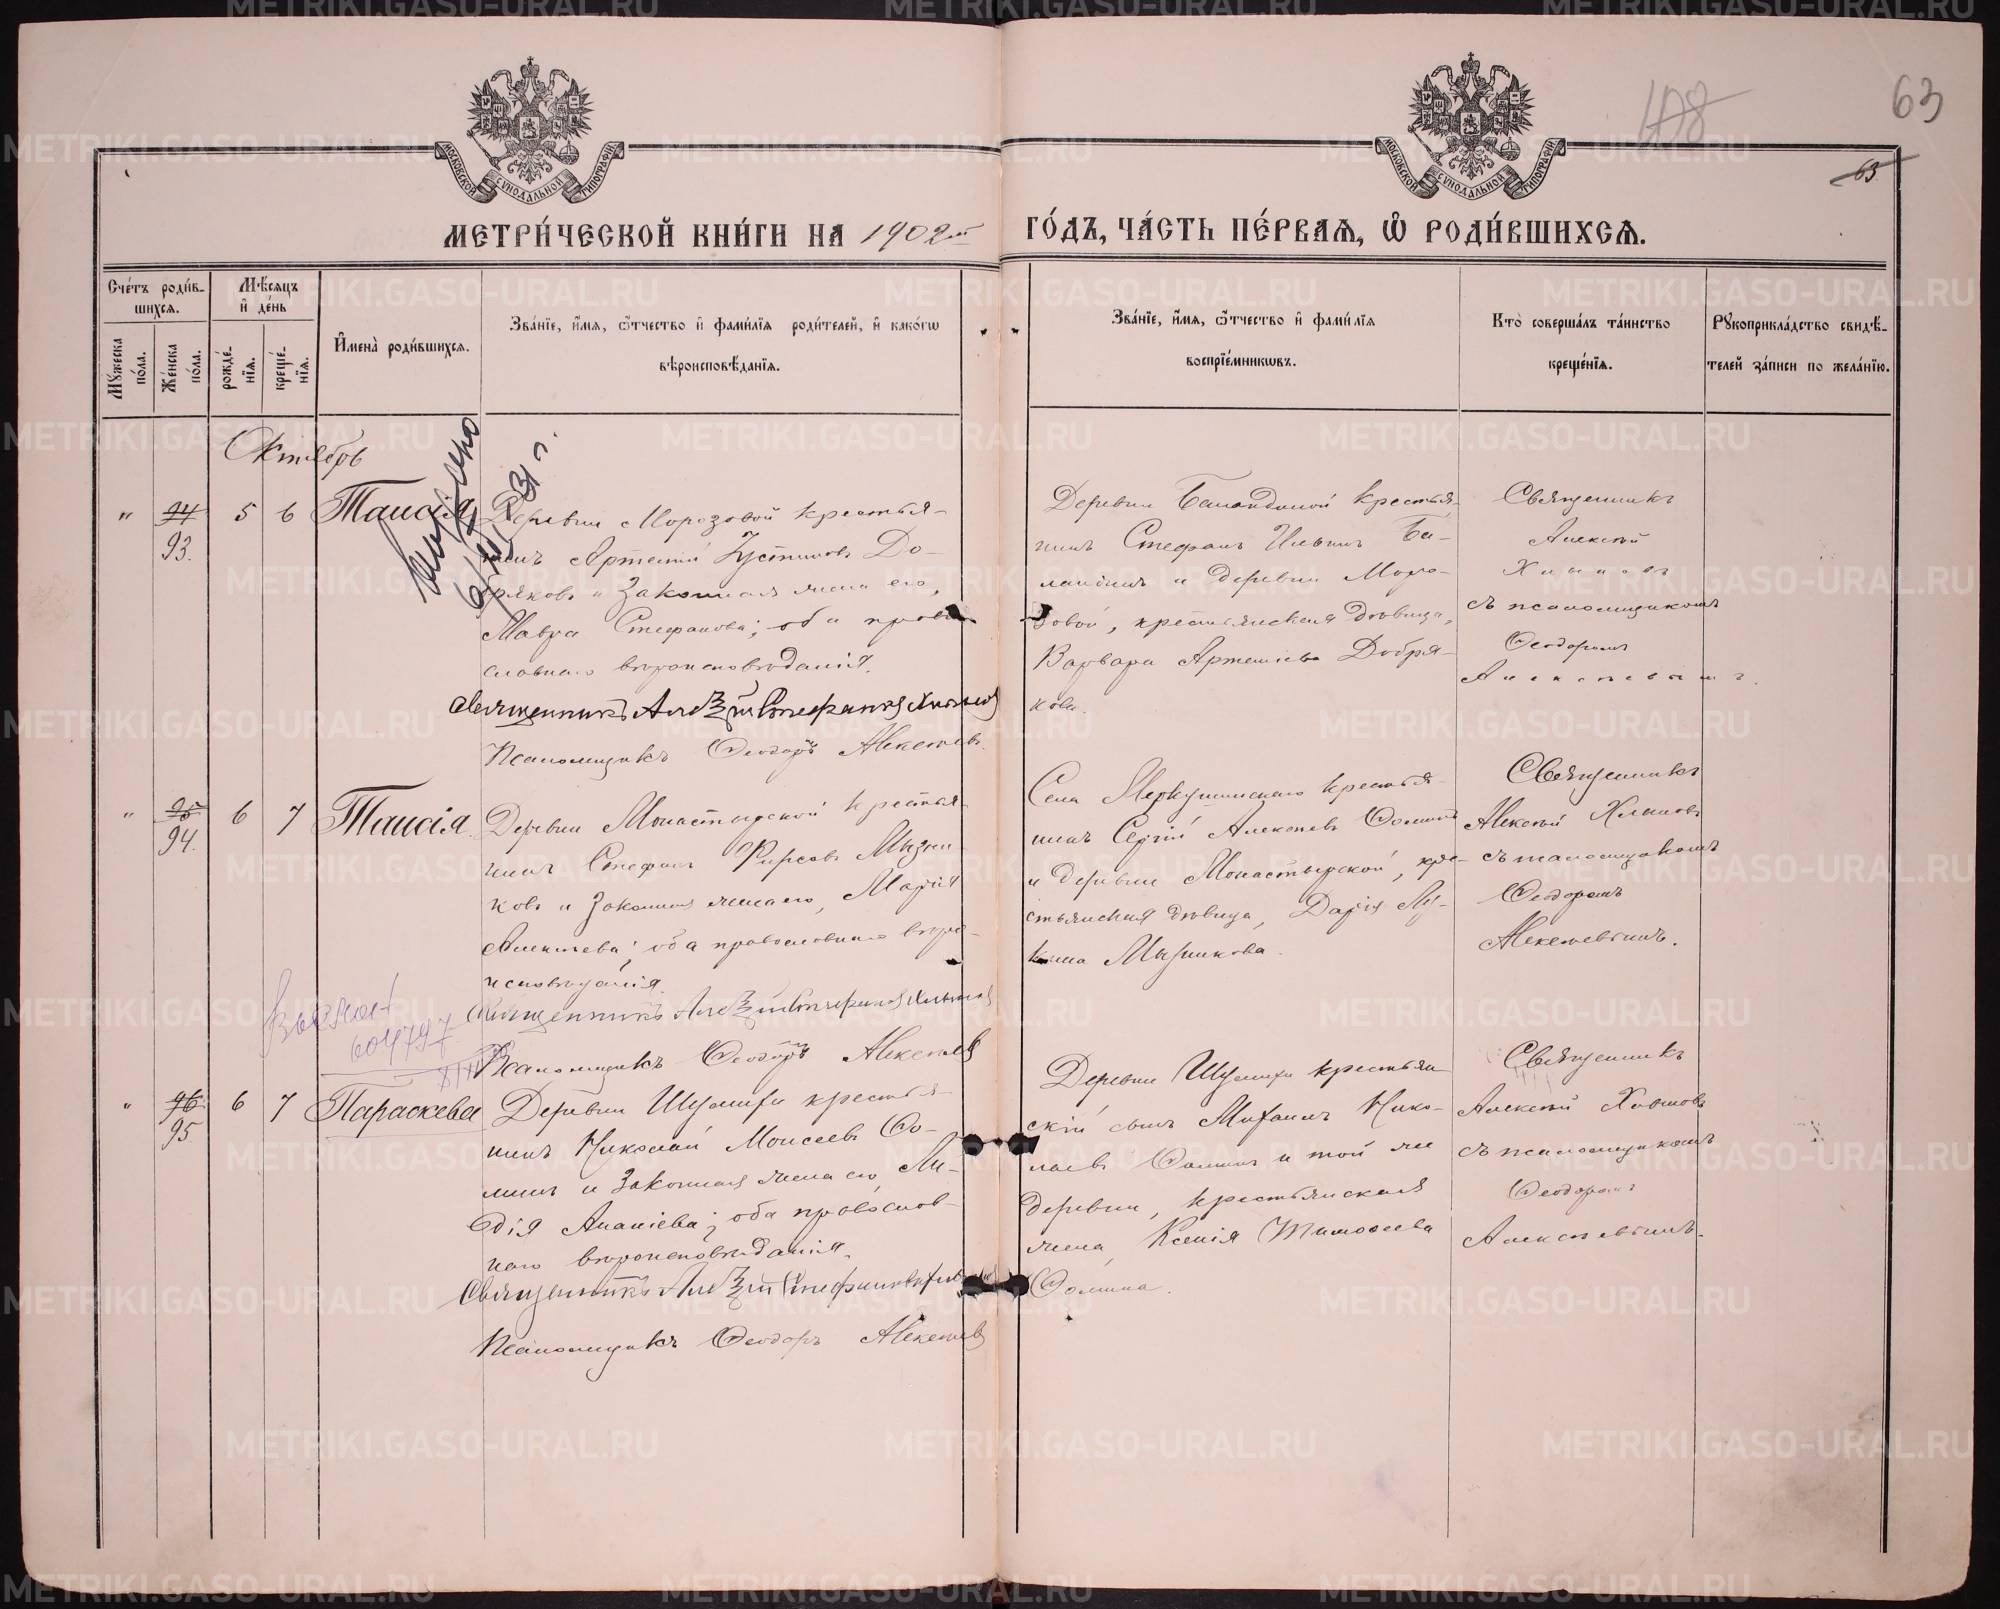 108
63
63
МОСКОВСКОЙ СѴНОДАЛЬНОЙ ТИПОГРАФІИ
МОСКОВСКОЙ СѴНОДАЛЬНОЙ ТИПОГРАФІИ
МЕТРИ́ЧЕСКОЙ КНИ́ГИ НА 1902й
ГО́ДЪ, ЧА́СТЬ ПЕ́РВАѦ, Ѽ РОДИ́ВШИХСѦ.
Сче́тъ роди́в-
шихсѧ.
Мꙋжеска
по́ла.
Же́нска
по́ла.
Мѣ́сѧцъ
и҆ де́нь
рожде́-
нїѧ.
креще́-
нїѧ.
И҆мена̀ роди́вшихсѧ.
Зва́нїе, и҆́мѧ, ѻ҆́тчество и҆ фами́лїѧ роди́телей, и҆ како́гѡ
вѣроисповѣ́данїѧ.
Зва́нїе, и҆́мѧ, ѻ҆́тчество и҆ фами́лїѧ
воспрїе́мникѡвъ.
Кто̀ соверша́лъ та́инство
креще́нїѧ.
Рꙋкоприкла́дство свидѣ́-
телей за́писи по жела́нїю.
Октябрь
" 94 93. 5 6 Таисія
Деревни Морозовой крестья-
нинъ Артемій Іустиновъ До-
бряковъ и законная жена его,
Мавра Стефанова; оба право-
славнаго вѣроисповѣданія.
Священникъ Алексій Стефановъ Хлыновъ
Псаломщикъ Ѳеодоръ Алексѣевъ.
Деревни Баландиной крестья-
нинъ Стефанъ Ильинъ Ба-
ландинъ и деревни Моро-
зовой, крестьянская дѣвица,
Варвара Артеміева Добря-
кова.
Священникъ
Алексій
Хлыновъ
съ псаломщикомъ
Ѳеодоромъ
Алексѣевымъ.
" 95 94. 6 7 Таисія.
Деревни Монастырской крестья-
нинъ Стефанъ Фирсовъ Мызни-
ковъ и законная жена его, Марія
Алексѣева; оба православнаго вѣро-
исповѣданія.
Священникъ Алексій Стефановъ Хлыновъ
Псаломщикъ Ѳеодоръ Алексѣевъ
Села Меркушинскаго крестья-
нинъ Сергій Алексѣевъ Ѳоминъ
и деревни Монастырской, кре-
стьянская дѣвица, Дарія Лу-
кина Мызникова.
Священникъ
Алексій Хлыновъ
съ псаломщикомъ
Ѳеодоромъ
Алексѣевымъ.
604797
" 96 95 6 7 Параскева
Деревни Шумихи крестья-
нинъ Николай Моисеевъ Ѳо-
минъ и законная жена его, Ли-
дія Ананіева; оба православ-
наго вѣроисповѣданія.
Священникъ Алексій Стефановъ Хлыновъ
Псаломщикъ Ѳеодоръ Алексѣевъ
Деревни Шумихи крестьян-
скій сынъ Михаилъ Нико-
лаевъ Ѳоминъ и той же
деревни, крестьянская
жена, Ксенія Тимоѳеева
Ѳомина.
Священникъ
Алексій Хлыновъ
съ псаломщикомъ
Ѳеодоромъ
Алексѣевымъ.
METRIKI.GASO-URAL.RU